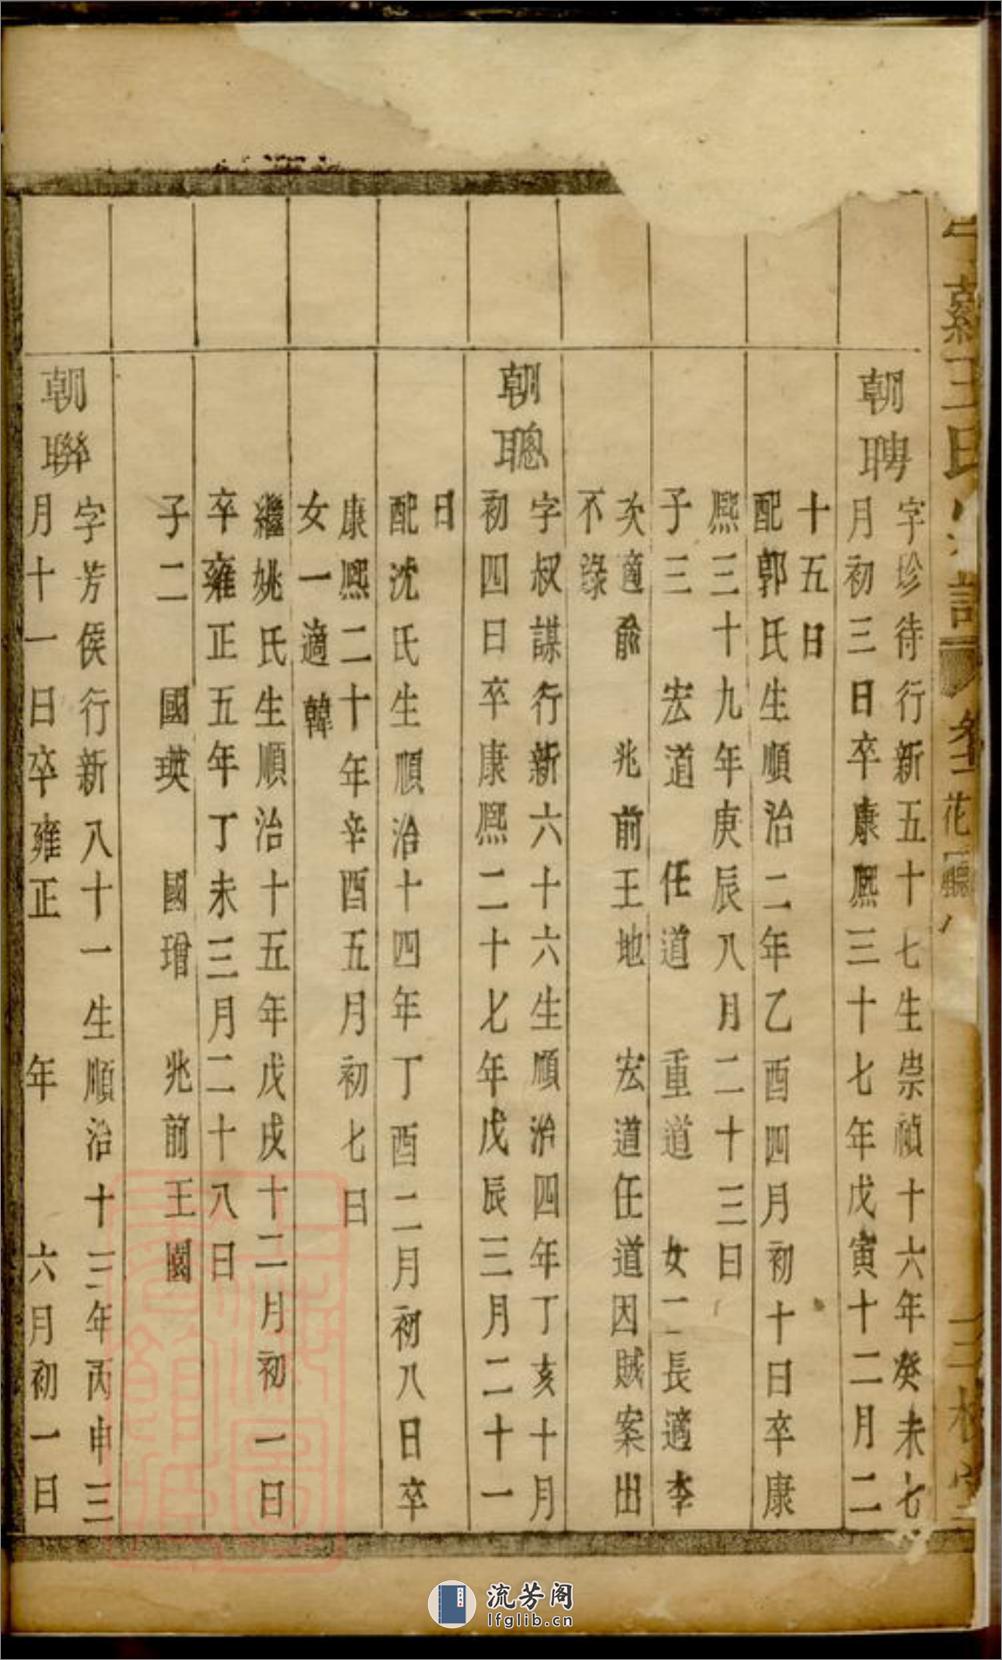 蘇王氏
卷二 花廳
三槐堂
朝聘
字珍待行新五十七生崇禎十六年癸未七
月初三日卒康熙三十七年戊寅十二月二
十五日
配郭氏生順治二年乙酉四月初十日卒康
熙三十九年庚辰八月二十三日
子三 宏道 任道 重道 女二長適李
次適俞 兆前王地 宏道任道因賊案出
不錄
朝聰
字叔謀行新六十六生順治四年丁亥十月
初四日卒康熙二十七年戊辰三月二十一
日
配沈氏生順治十四年丁酉二月初八日卒
康熙二十年辛酉五月初七日
女一適韓
繼姚氏生順治十五年戊戌十二月初一日
卒雍正五年丁未三月二十八日
子二 國瑛 國璔 兆前王園
朝聯
字芳侯行新八十一生順治十三年丙申三
月十一日卒雍正 年 六月初一日
流芳阁
lfglib.cn